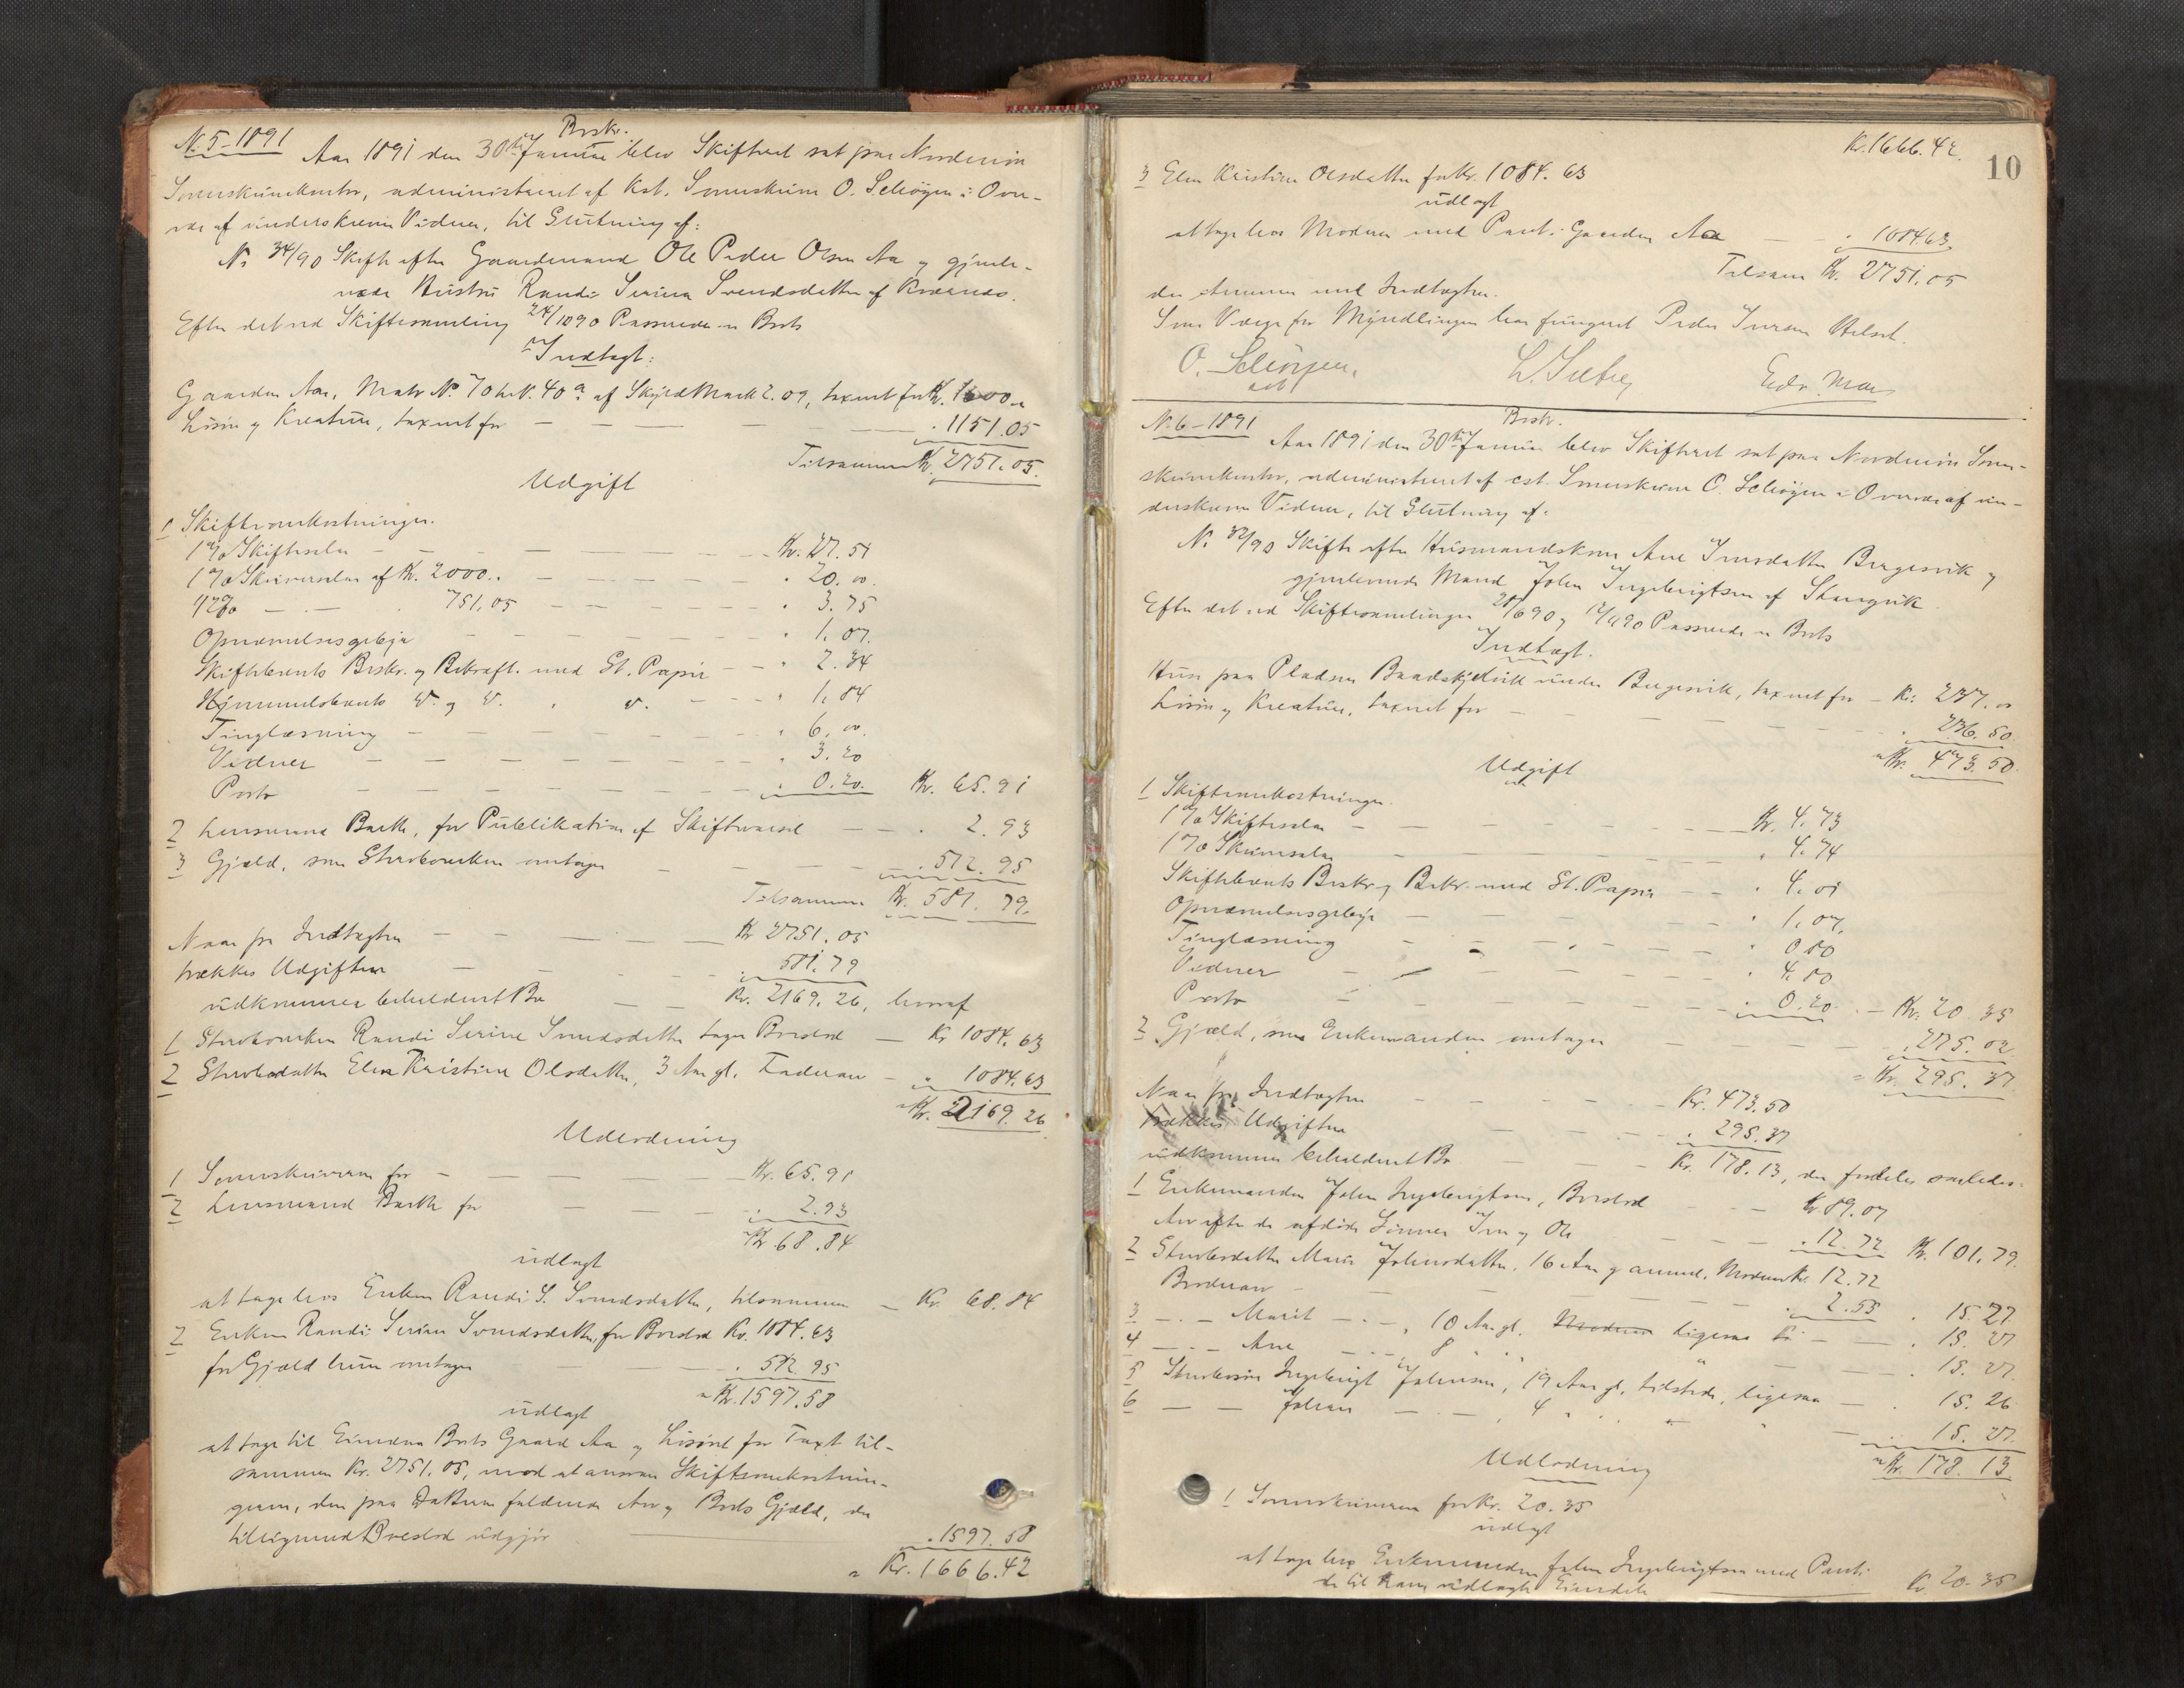 Brskr.
N. 5-1891 Aar 1891 den 30te Januar blev Skifteret sat paa Nordmør
Sorenskriverkontor, administreret af Kst. Sorenskriver O. Schrøyen i Over-
vær af underskrevne Vidner, til Slutning af:
No 34/90 Skifte efter Gaardmand Ole Peder Olsen Aa og gjenle-
vende Hustru Randi Serina Svendsdatter af
Efter det ved Skiftesamling 24/10 90 Passerede er Boets
Indtægt:
Gaarden Aa, Matr. No. 70 L.N. 40a af Skyld Mark 2.09, taxeret for Kr. 1600.
Løsøre og Kreature, taxeret for . 1151.05
Tilsammen Kr. 2751.05.
Udgift
1 Skifteomkostninger.
1% Skiftesalær Kr. 27.51
1% Skriversalær af Kr. 2000.. . 20.00.
1/2% 751.05 . 3.75
Opnævnelsesgebyr . 1.07.
Skiftebrevets Beskr. og Bekræft. med St. Papir . 2.34
Hjemmelsbrevets d. og d. . d. . 1.84
Tinglæsning . 6.00.
Vidner . 3.20
Porto . 0.20. Kr. 65.91
2 Lensmand Barth, for Publikation af Skiftevarsel . 2.93
3 Gjæld, som Stervboenken overtager . 512.95
Tilsammen Kr. 581.79.
Naar fra Indtægten Kr 2751.05
trækkes Udgiften . 581.79
udkommer beholdent Bo Kr. 2169.26, hvoraf
1 Stervboenken Randi Serine Svendsdatter tager Boeslod Kr 1084.63
2 Stervbodatter Elen Kristine Olsdatter, 3 Aar gl. Faderarv . 1084.63
Kr. 2169.26
Udlodning
1 Sorenskriveren for Kr. 65.91
2 Lensmand Barth for . 2.93
Kr. 68.84
udlagt
at tage hos Enken Randi S. Svendsdatter, tilsammen Kr. 68.84
2 Enken Randi Serine Svendsdatter, for Boeslod Kr. 1084.63
for Gjæld hun overtager . 512.95
Kr. 1597.58
udlagt
at tage til Eiendom Boets Gaard Aa og Løsøre for Taxt til-
sammen Kr. 2751.05, mod at ansvare Skifteomkostnin-
gerne, den paa Datteren faldende Arv og Boets Gjæld, der
tilligemed Boeslod udgjør . 1597.58
Kr. 1666.42
Kr. 1666.42.
10
3 Elen Kristine Olsdatter for Kr. 1084.63
udlagt
at tage hos Moderen med Pant i Gaarden Aa . 1084.63.
Tilsam. Kr. 2751.05
der stemmer med Indtægten.
Som Værge for Myndlingen har fungeret Peder Iversen Halset.
O. Schrøyen,
Brskr.
N. 6-1891 Aar 1891 den 30te Januar blev Skifteret sat paa Nordmør Soren-
skriverkontor, administreret af cst. Sorenskriver O. Schrøyen i Overvær af un-
derskrevne Vidner, til Slutning af:
No. 32/90 Skifte efter Husmandskone Ane Iversdatter Bergesvik og
gjenlevende Mand John Ingebrigtsen af Stangvik.
Efter det ved Skiftesamlinger 21/6 90 og 12/11 90 Passerede er Boets
Indtægt.
Hus paa Pladsen Baadskjelvik under Bergesvik, taxeret for Kr. 237.00
Løsøre og Kreature, taxeret for . 236.50
Kr. 473.50.
Udgift
1 Skifteomkostninger.
1% Skiftesalær Kr. 4.73
1% Skriversalær . 4.74
Skiftebrevets Beskr. og Bekr. med St. Papir . 4.01
Opnævnelsesgebyr . 1.07.
Tinglæsning . 0.80
Vidner . 4.80
Porto . 0.20. Kr. 20.35
2 Gjæld, som Enkemanden overtager . 275.02
Kr. 295.37
Naar fra Indtægten Kr. 473.50
trækkes Udgiften . 295.37
udkommer beholdent Bo Kr. 178.13, der fordeles saaledes:
1 Enkemanden John Ingebrigtsen, Boeslod Kr. 89.07
Arv efter de afdøde Sønner Iver og Ole . 12.72 Kr. 101.79.
2 Stervbodatter Marie Johnsdatter, 16 Aar gammel, Moderarv Kr. 12.72
Broderarv . 2.55 . 15.27
3 Marit , 10 Aar gl. Moderarv ligesaa . 15.27
4 Ane 8 . 15.27
5 Stervbosøn Ingebrigt Johnsen, 19 Aar gl., tilstede, ligesaa . 15.26
6 Johan , 4 . 15.27.
Kr. 178.13
Udlodning
1 Sorenskriveren for Kr. 20.35
udlagt
at tage hos Enkemanden John Ingebrigtsen med Pant i
de til ham udlagte Eiendele Kr. 20.35